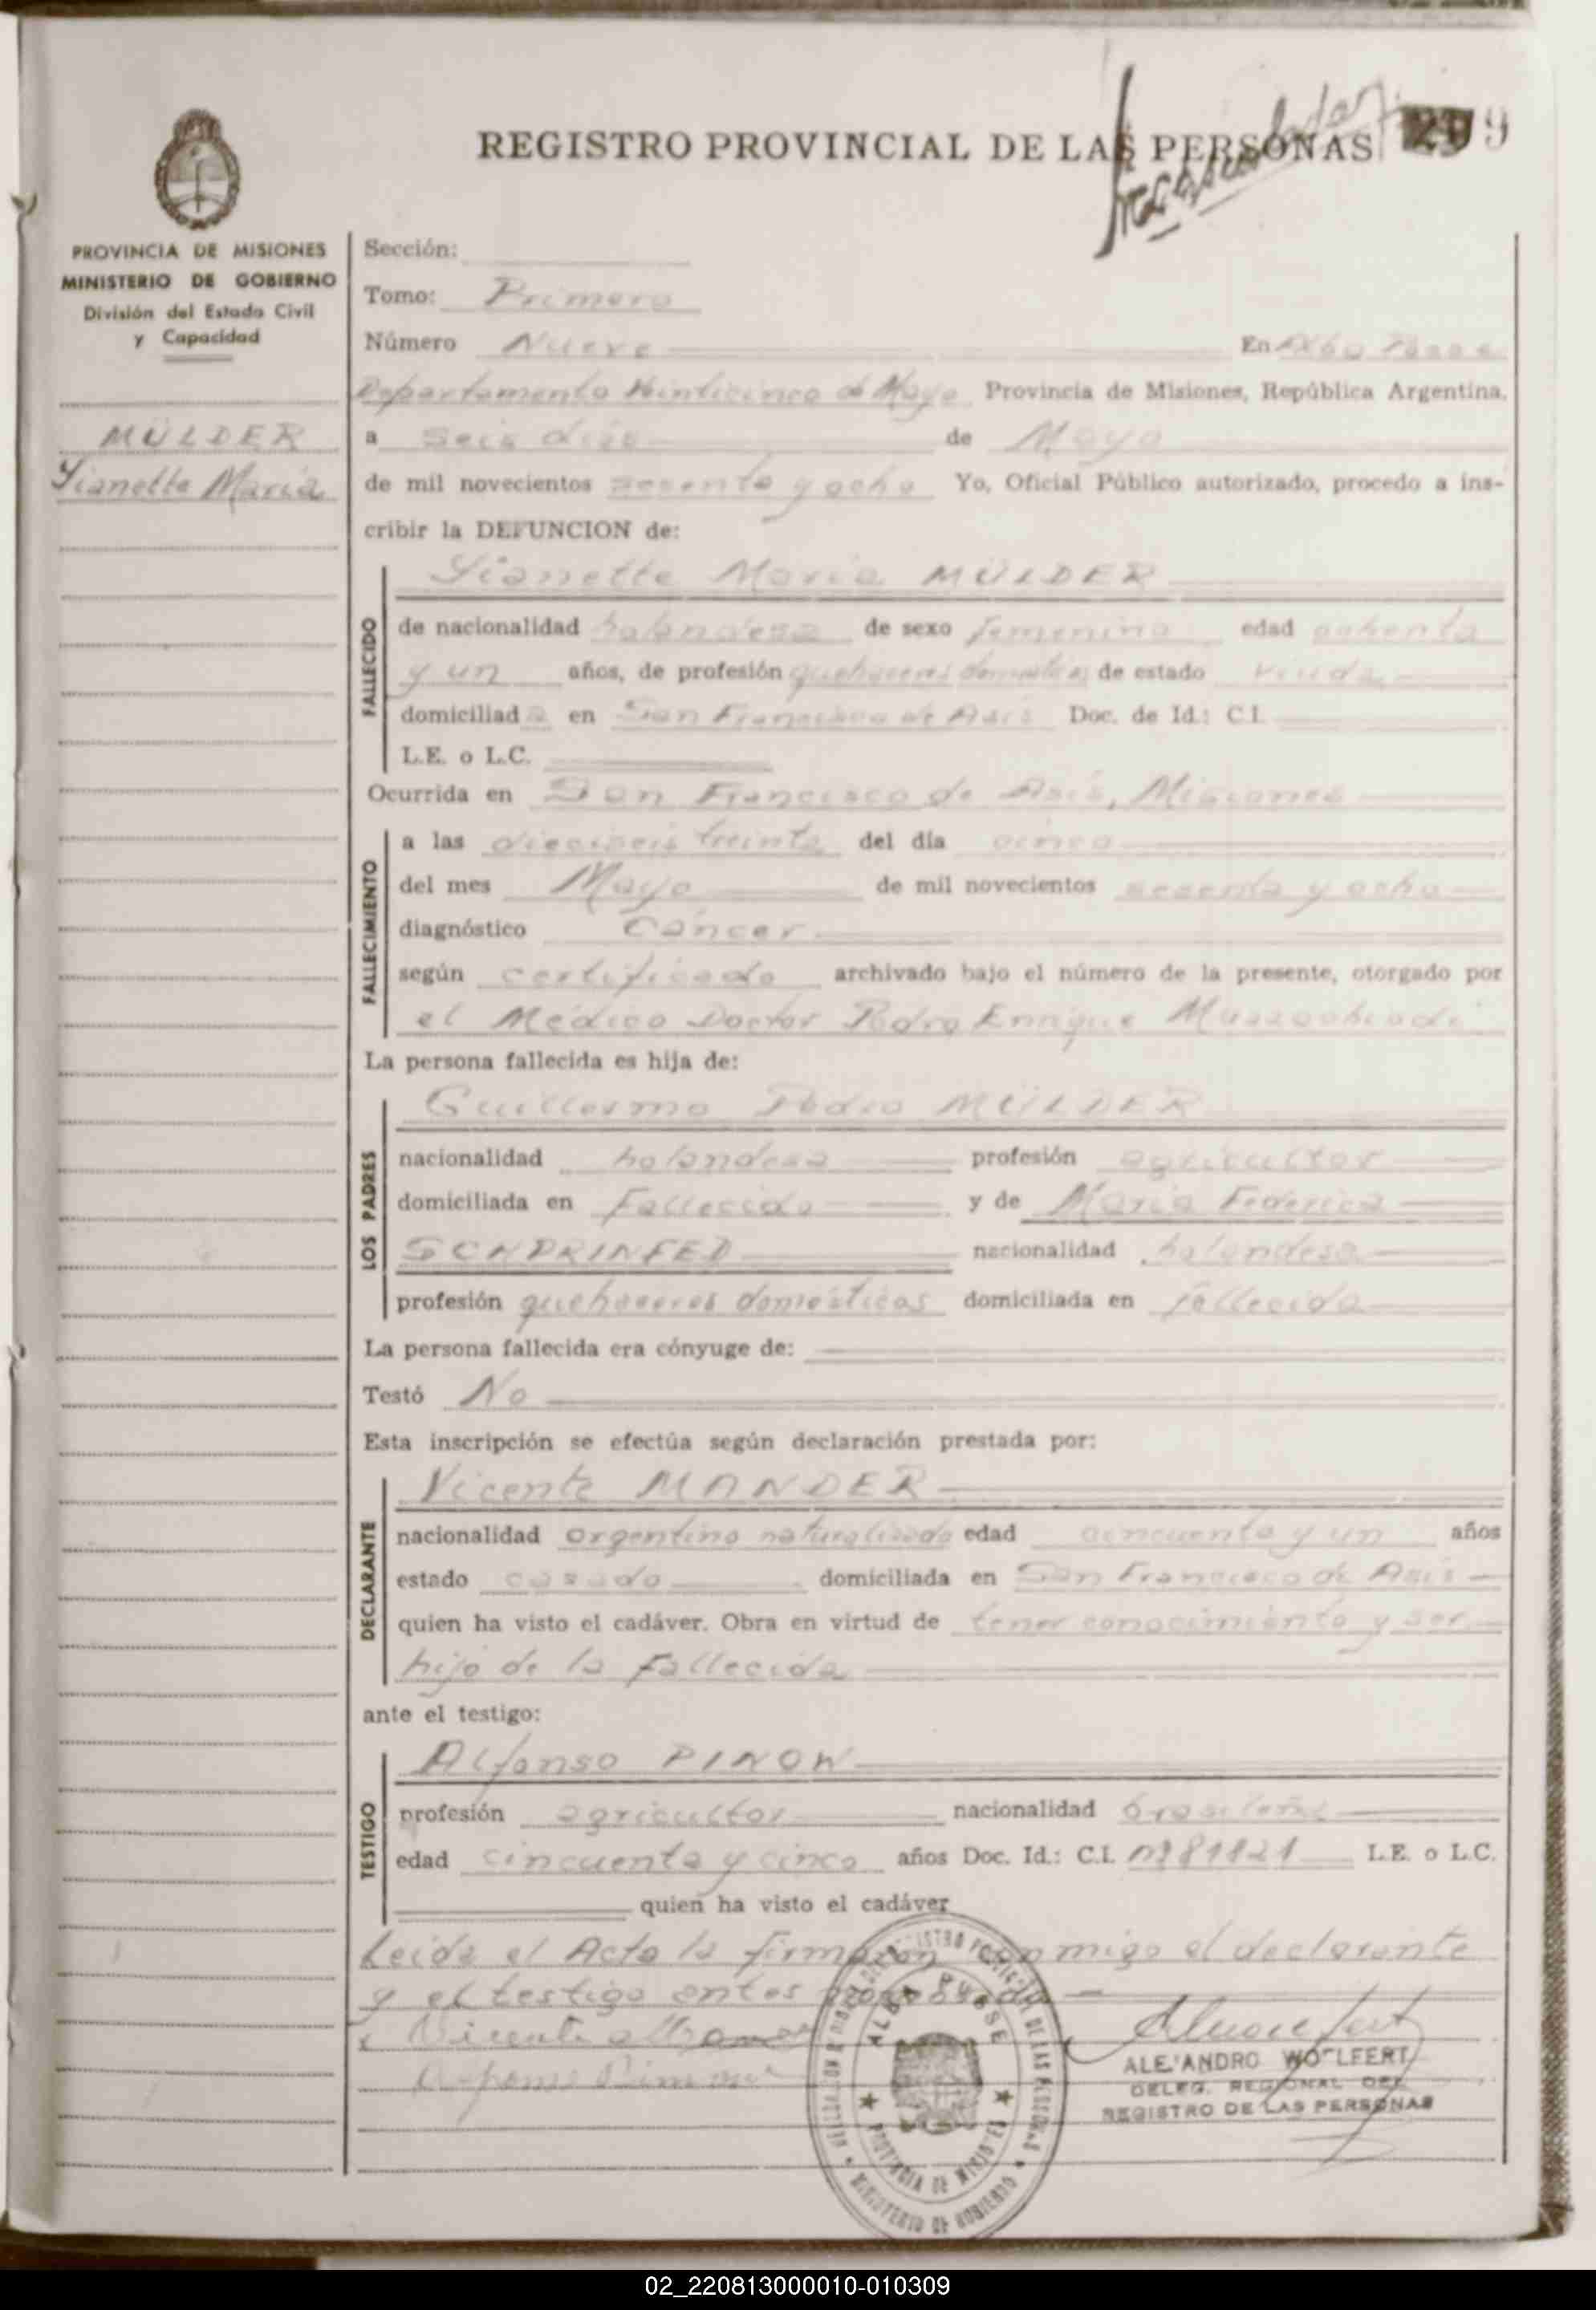 REGISTRO PROVINCIAL DE LAS PERSONAS
PROVINCIA DE MISIONES
MINISTERIO DE GOBIERNO
División del Estado Civil
y Capacidad
MÜLDER
Sianette Maria
Sección:
Tomo: Primero
Número Nueve En Alba Posse
Departamento Veinticinco de Mayo Provincia de Misiones, República Argentina,
a seis días de Mayo
de mil novecientos sesenta y ocho Yo, Oficial Público autorizado, procedo a ins-
cribir la DEFUNCION de:
Sianette Maria MÜLDER
FALLECIDO
de nacionalidad holandesa de sexo femenino edad ochenta
y un años, de profesión quehaceres domésticos de estado viuda
domiciliada en San Francisco de Asis Doc. de Id.: C.I.
L.E. o L.C.
Ocurrida en San Francisco de Asis, Misiones
FALLECIMIENTO
a las dieciseis treinta del día cinco
del mes Mayo de mil novecientos sesenta y ocho
diagnóstico Cáncer
según certificado archivado bajo el número de la presente, otorgado por
el Médico Doctor Pedro Enrique
La persona fallecida es hija de:
Guillermo Pedro MÜLDER
LOS PADRES
nacionalidad holandesa profesión agricultor
domiciliada en Fallecido y de Maria Federica
SCHPRINFED nacionalidad holandesa
profesión quehaceres domésticos domiciliada en fallecida
La persona fallecida era cónyuge de:
Testó No
Esta inscripción se efectúa según declaración prestada por:
Vicente MANDER
DECLARANTE
nacionalidad argentino naturalizado edad cincuenta y un años
estado casado domiciliada en San Francisco de Asis
quien ha visto el cadáver. Obra en virtud de tener conocimiento y ser
hijo de la fallecida
ante el testigo:
Alfonso PINOW
TESTIGO
profesión agricultor nacionalidad brasileña
edad cincuenta y cinco años Doc. Id.: C.I. L.E. o L.C.
quien ha visto el cadáver
Leida el Acta la firman conmigo el declarante
y el testigo antes
Vicente
ALBA POSSE
PROVINCIA DE MISIONES
MINISTERIO DE GOBIERNO
ALEJANDRO WOLFERT
DELEG. REGIONAL DEL
REGISTRO DE LAS PERSONAS
02_220813000010-010309